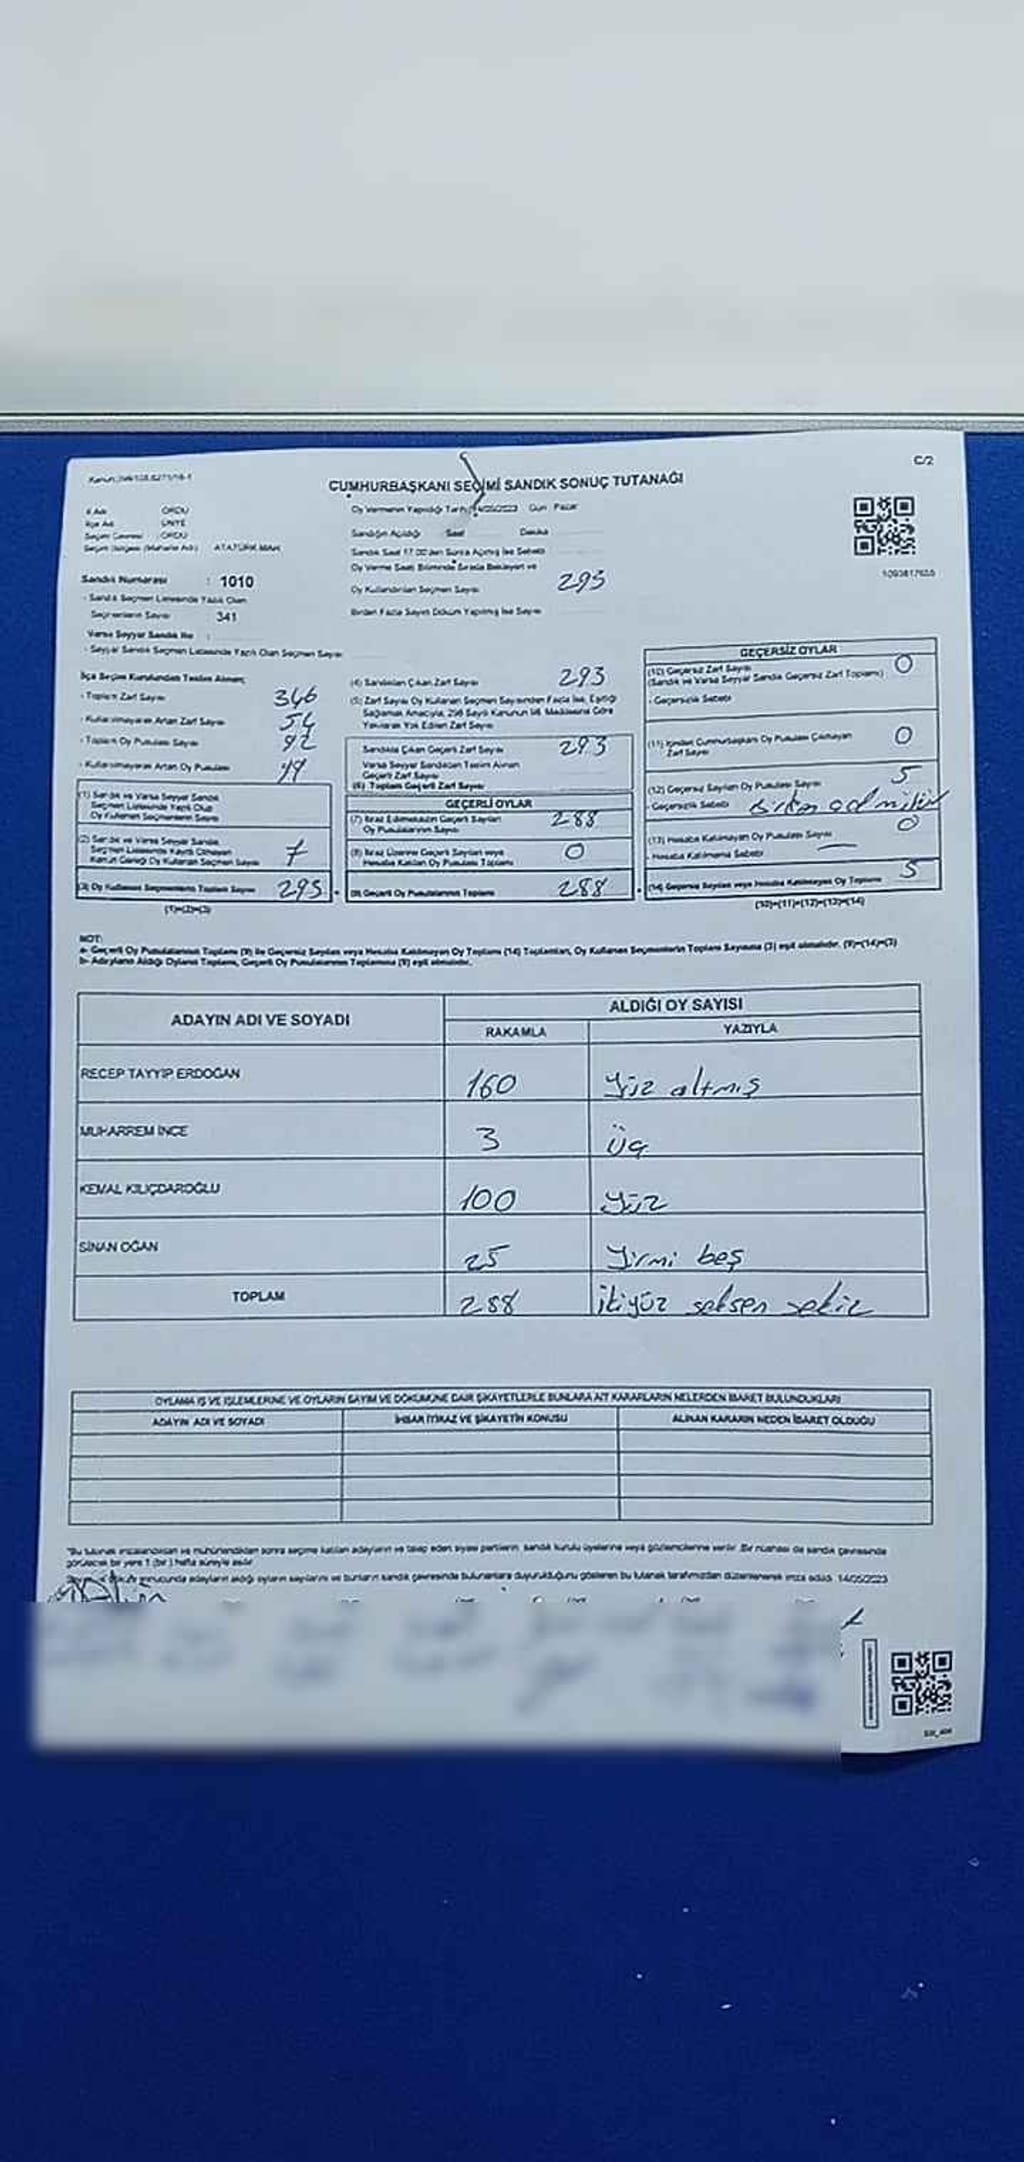 C/2
CUMHURBAŞKANI SEÇİMİ SANDIK SONUÇ TUTANAĞI
İl Adı ORDU
İlçe Adı ÜNYE
Seçim Çevresi ORDU
Seçim Bölgesi (Mahalle Adı) ATATÜRK MAH.
Sandık Numarası : 1010
- Sandık Seçmen Listesinde Yazılı Olan
Seçmenlerin Sayısı 341
Varsa Seyyar Sandık No :
- Seyyar Sandık Seçmen Listesinde Yazılı Olan Seçmen Sayısı
Oy Vermenin Yapıldığı Tarih 14/05/2023 Gün Pazar
Sandığın Açıldığı Saat Dakika
Sandık Saat 17.00'den Sonra Açılmış İse Sebebi
Oy Verme Saati Bitiminde Sırada Bekleyen ve
Oy Kullandırılan Seçmen Sayısı
Birden Fazla Sayım Döküm Yapılmış İse Sayısı
İlçe Seçim Kurulundan Teslim Alınan;
- Toplam Zarf Sayısı
- Kullanılmayarak Artan Zarf Sayısı 54
- Toplam Oy Pusulası Sayısı
- Kullanılmayarak Artan Oy Pusulası
(1) Sandık ve Varsa Seyyar Sandık
Seçmen Listesinde Yazılı Olup
Oy Kullanan Seçmenlerin Sayısı
(2) Sandık ve Varsa Seyyar Sandık
Seçmen Listesinde Kayıtlı Olmayan
Kanun Gereği Oy Kullanan Seçmen Sayısı 7
(3) Oy Kullanan Seçmenlerin Toplam Sayısı
(1)+(2)=(3)
(4) Sandıktan Çıkan Zarf Sayısı 293
(5) Zarf Sayısı Oy Kullanan Seçmen Sayısından Fazla İse, Eşitliği
Sağlamak Amacıyla, 298 Sayılı Kanunun 98. Maddesine Göre
Yakılarak Yok Edilen Zarf Sayısı
Sandıkta Çıkan Geçerli Zarf Sayısı 293
Varsa Seyyar Sandıktan Teslim Alınan
Geçerli Zarf Sayısı
(6) Toplam Geçerli Zarf Sayısı
GEÇERLİ OYLAR
(7) İtiraz Edilmeksizin Geçerli Sayılan 288
Oy Pusulalarının Sayısı
(8) İtiraz Üzerine Geçerli Sayılan veya 0
Hesaba Katılan Oy Pusulası Toplamı
(9) Geçerli Oy Pusulalarının Toplamı 288
GEÇERSİZ OYLAR
Geçersiz Zarf Sayısı 0
(Sandık ve Varsa Seyyar Sandık Geçersiz Zarf Toplamı)
- Geçersizlik Sebebi
(11) İçinden Cumhurbaşkanı Oy Pusulası Çıkmayan 0
Zarf Sayısı
(12) Geçersiz Sayılan Oy Pusulası Sayısı 5
- Geçersizlik Sebebi
(13) Hesaba Katılmayan Oy Pusulası Sayısı 0
- Hesaba Katılmama Sebebi
(14) Geçersiz Sayılan veya Hesaba Katılmayan Oy Toplamı 5
(10)+(11)+(12)+(13)=(14)
NOT:
a- Geçerli Oy Pusulalarının Toplamı (9) ile Geçersiz Sayılan veya Hesaba Katılmayan Oy Toplamı (14) Toplamları, Oy Kullanan Seçmenlerin Toplam Sayısına (3) eşit olmalıdır. (9)+(14)=(3)
b- Adayların Aldığı Oyların Toplamı, Geçerli Oy Pusulalarının Toplamına (9) eşit olmalıdır.
ADAYIN ADI VE SOYADI
ALDIĞI OY SAYISI
RAKAMLA YAZIYLA
RECEP TAYYİP ERDOĞAN 160 Yüz altmış
MUHARREM İNCE 3 üç
KEMAL KILIÇDAROĞLU 100 Yüz
SİNAN OĞAN 25 Yirmi beş
TOPLAM 288 ikiyüz seksen sekiz
OYLAMA İŞ VE İŞLEMLERİNE VE OYLARIN SAYIM VE DÖKÜMÜNE DAİR ŞİKAYETLERLE BUNLARA AİT KARARLARIN NELERDEN İBARET BULUNDUKLARI
ADAYIN ADI VE SOYADI İHBAR İTİRAZ VE ŞİKAYETİN KONUSU ALINAN KARARIN NEDEN İBARET OLDUĞU
"Bu tutanak imzalandıktan ve mühürlendikten sonra seçime katılan adayların ve talep eden siyasi partilerin, sandık kurulu üyelerine veya gözlemcilerine verilir. Bir nüshası da sandık çevresinde
görülecek bir yere 1 (bir) hafta süreyle asılır.
sonucunda adayların aldığı oyların sayılarını ve bunların sandık çevresinde bulunanlara duyurulduğunu gösteren bu tutanak tarafımızdan düzenlenerek imza edildi. 14/05/2023